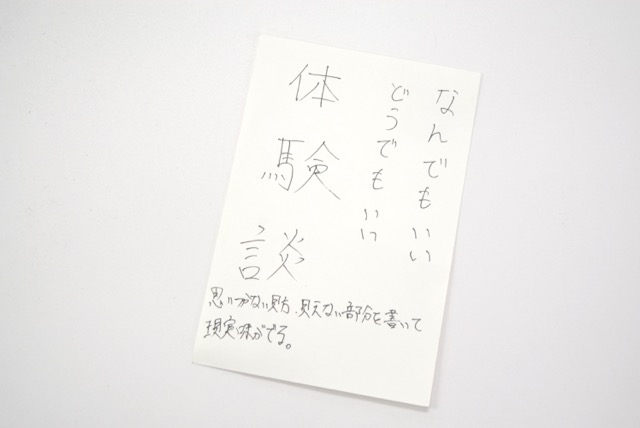 なんでもいい
どうでもいい
体験談
思いつかない見方、見えない部分を書いて
現実味がでる。